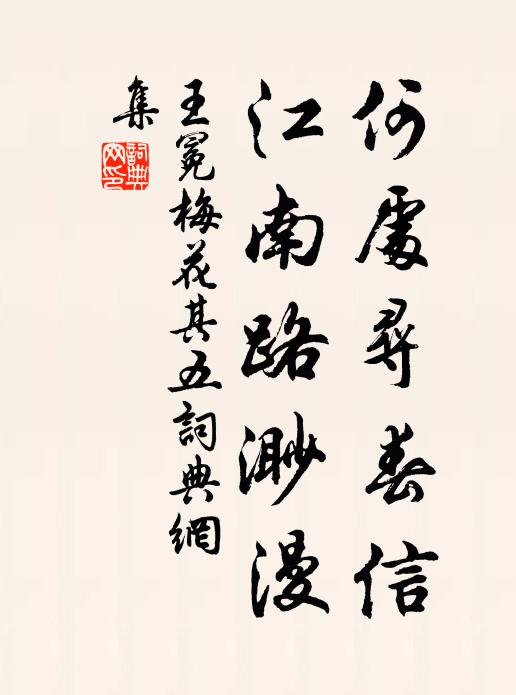 何處尋春信
江南路渺漫
王冕梅花其五詞典網
集
詞典
网印